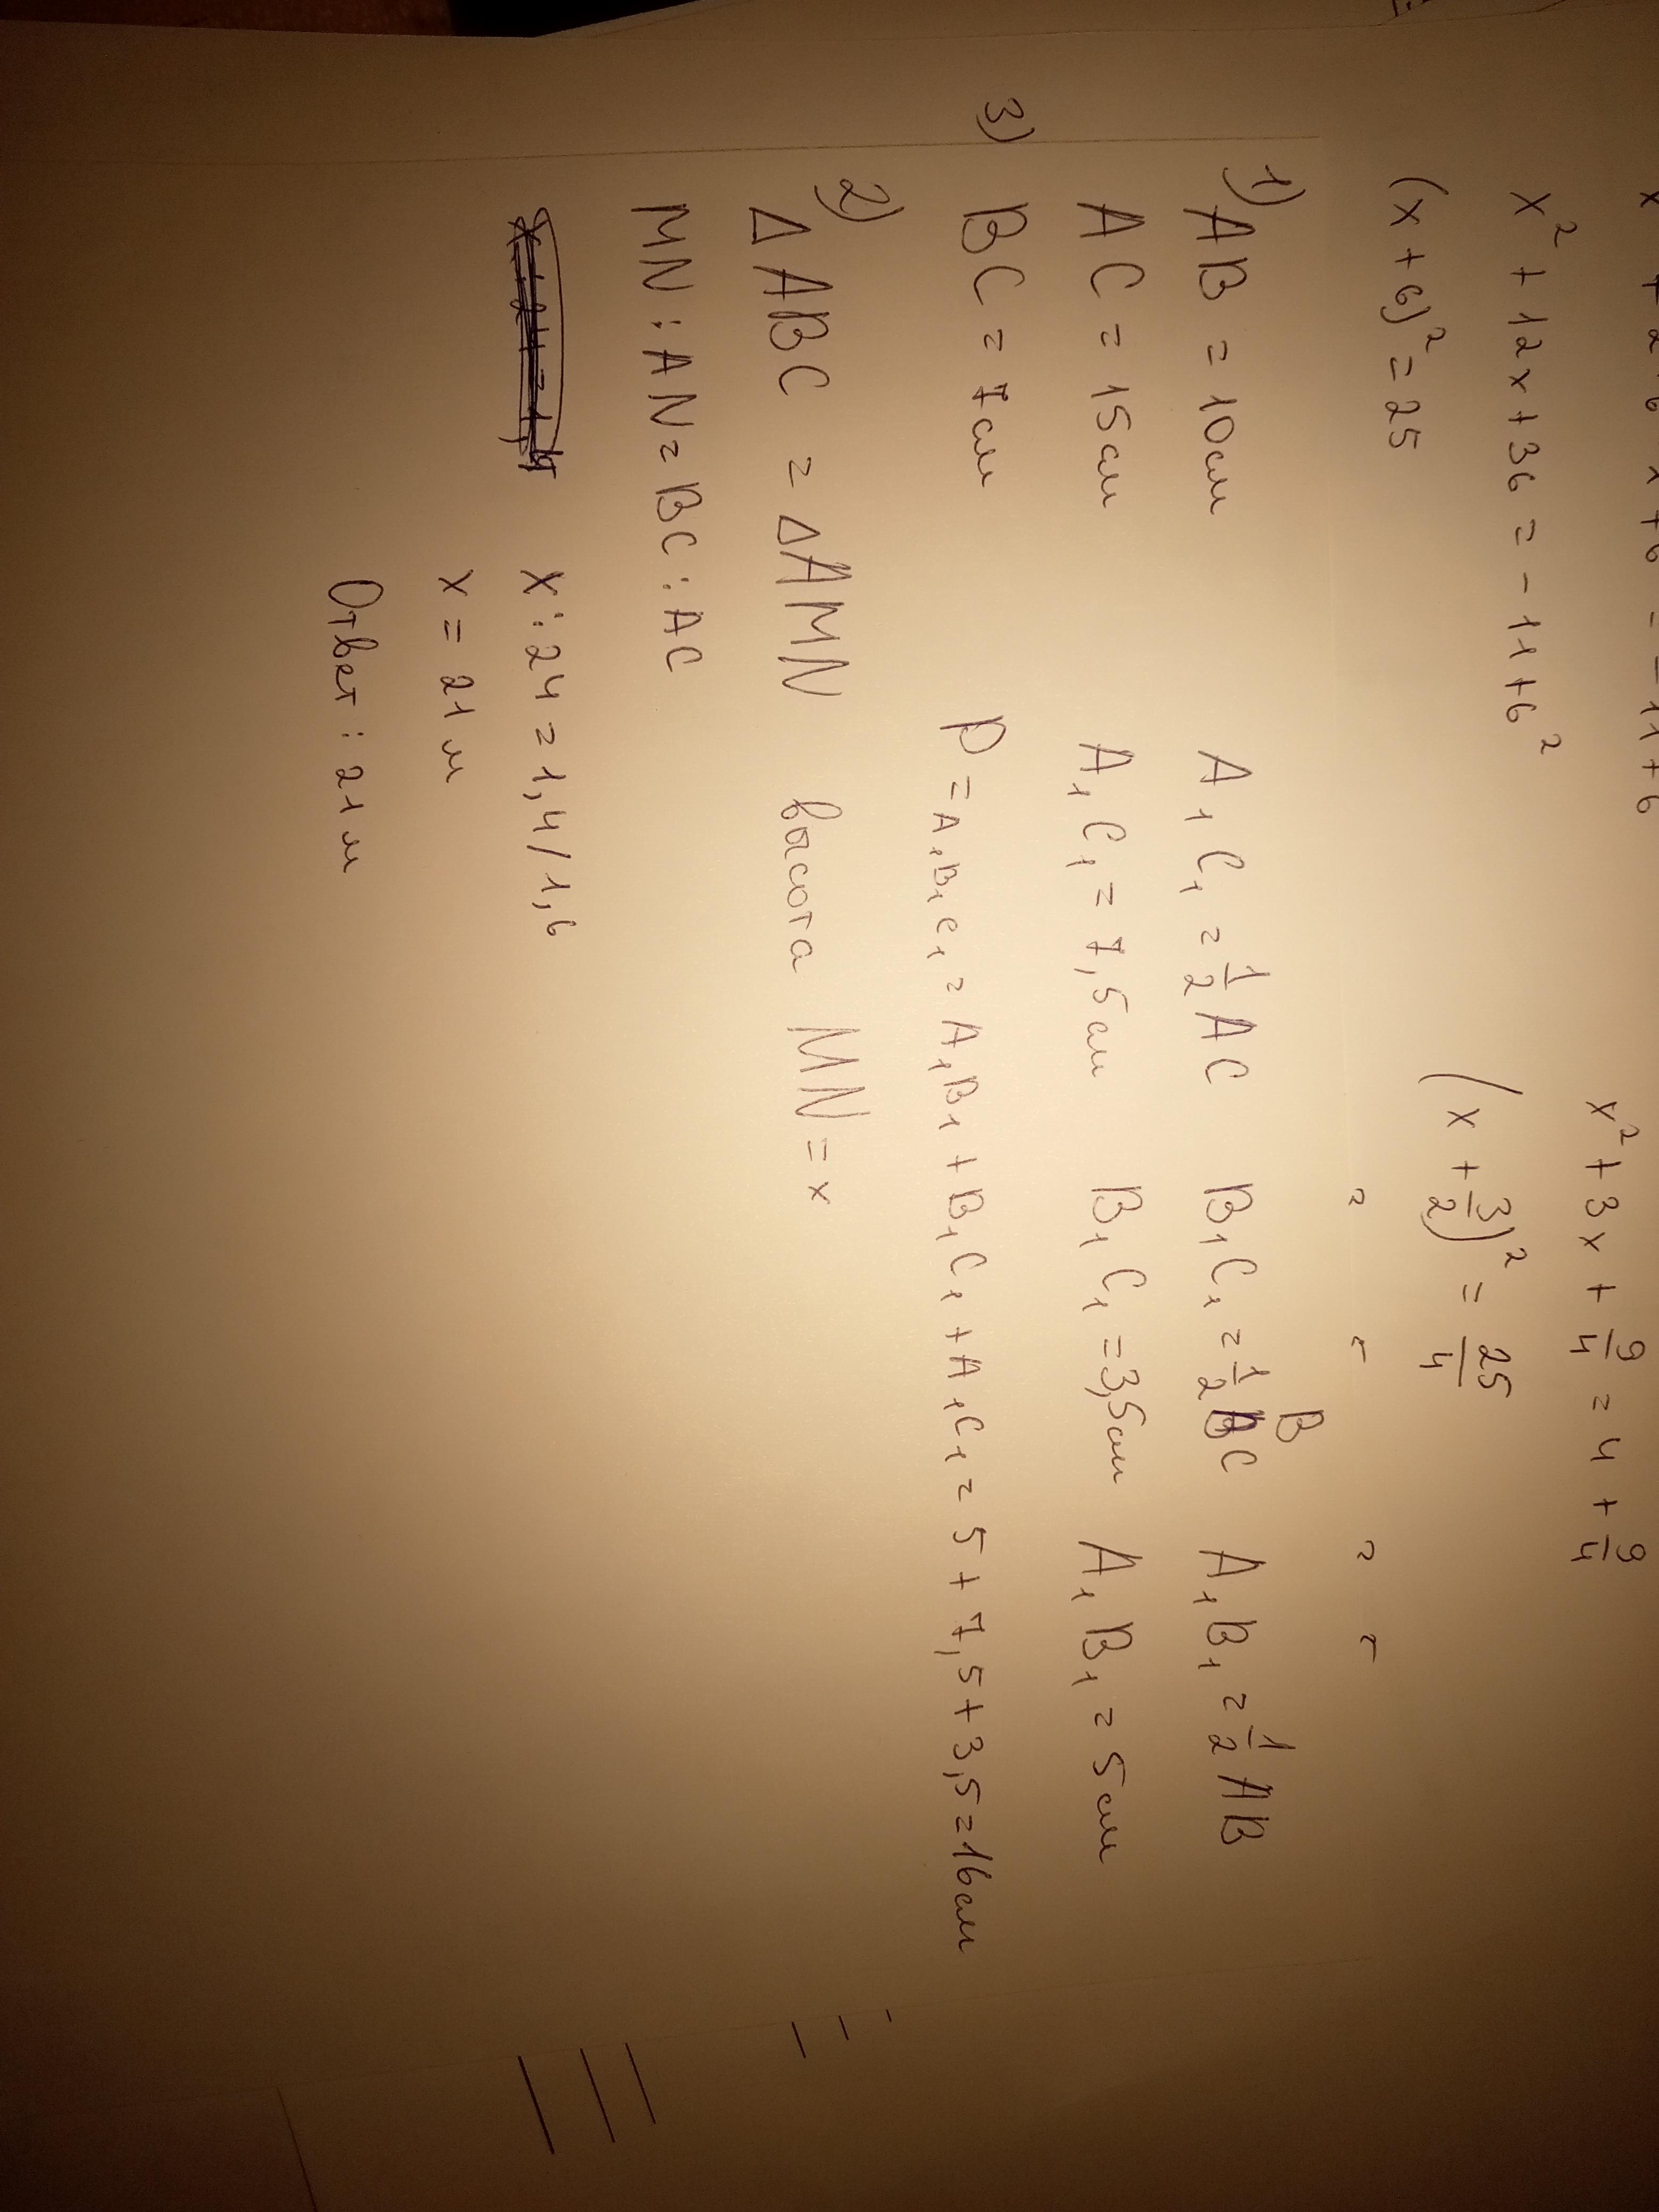 x² + 3x + 9/4 = 4 + 9/4
x² + 12x + 36 = -11 + 6²
(x + 6)² = 25
(x + 3/2)² = 25/4
3)
1) AB = 10см A₁C₁ = 1/2 AC B₁C₁ = 1/2 BC A₁B₁ = 1/2 AB
AC = 15см A₁C₁ = 7,5см B₁C₁ = 3,5см A₁B₁ = 5см
BC = 7см P = A₁B₁C₁ = A₁B₁ + B₁C₁ + A₁C₁ = 5 + 7,5 + 3,5 = 16см
2)
Δ ABC = Δ AMN высота MN = x
MN : AN = BC : AC
x : 24 = 1,4/1,6
x = 21 м
Ответ : 21 м